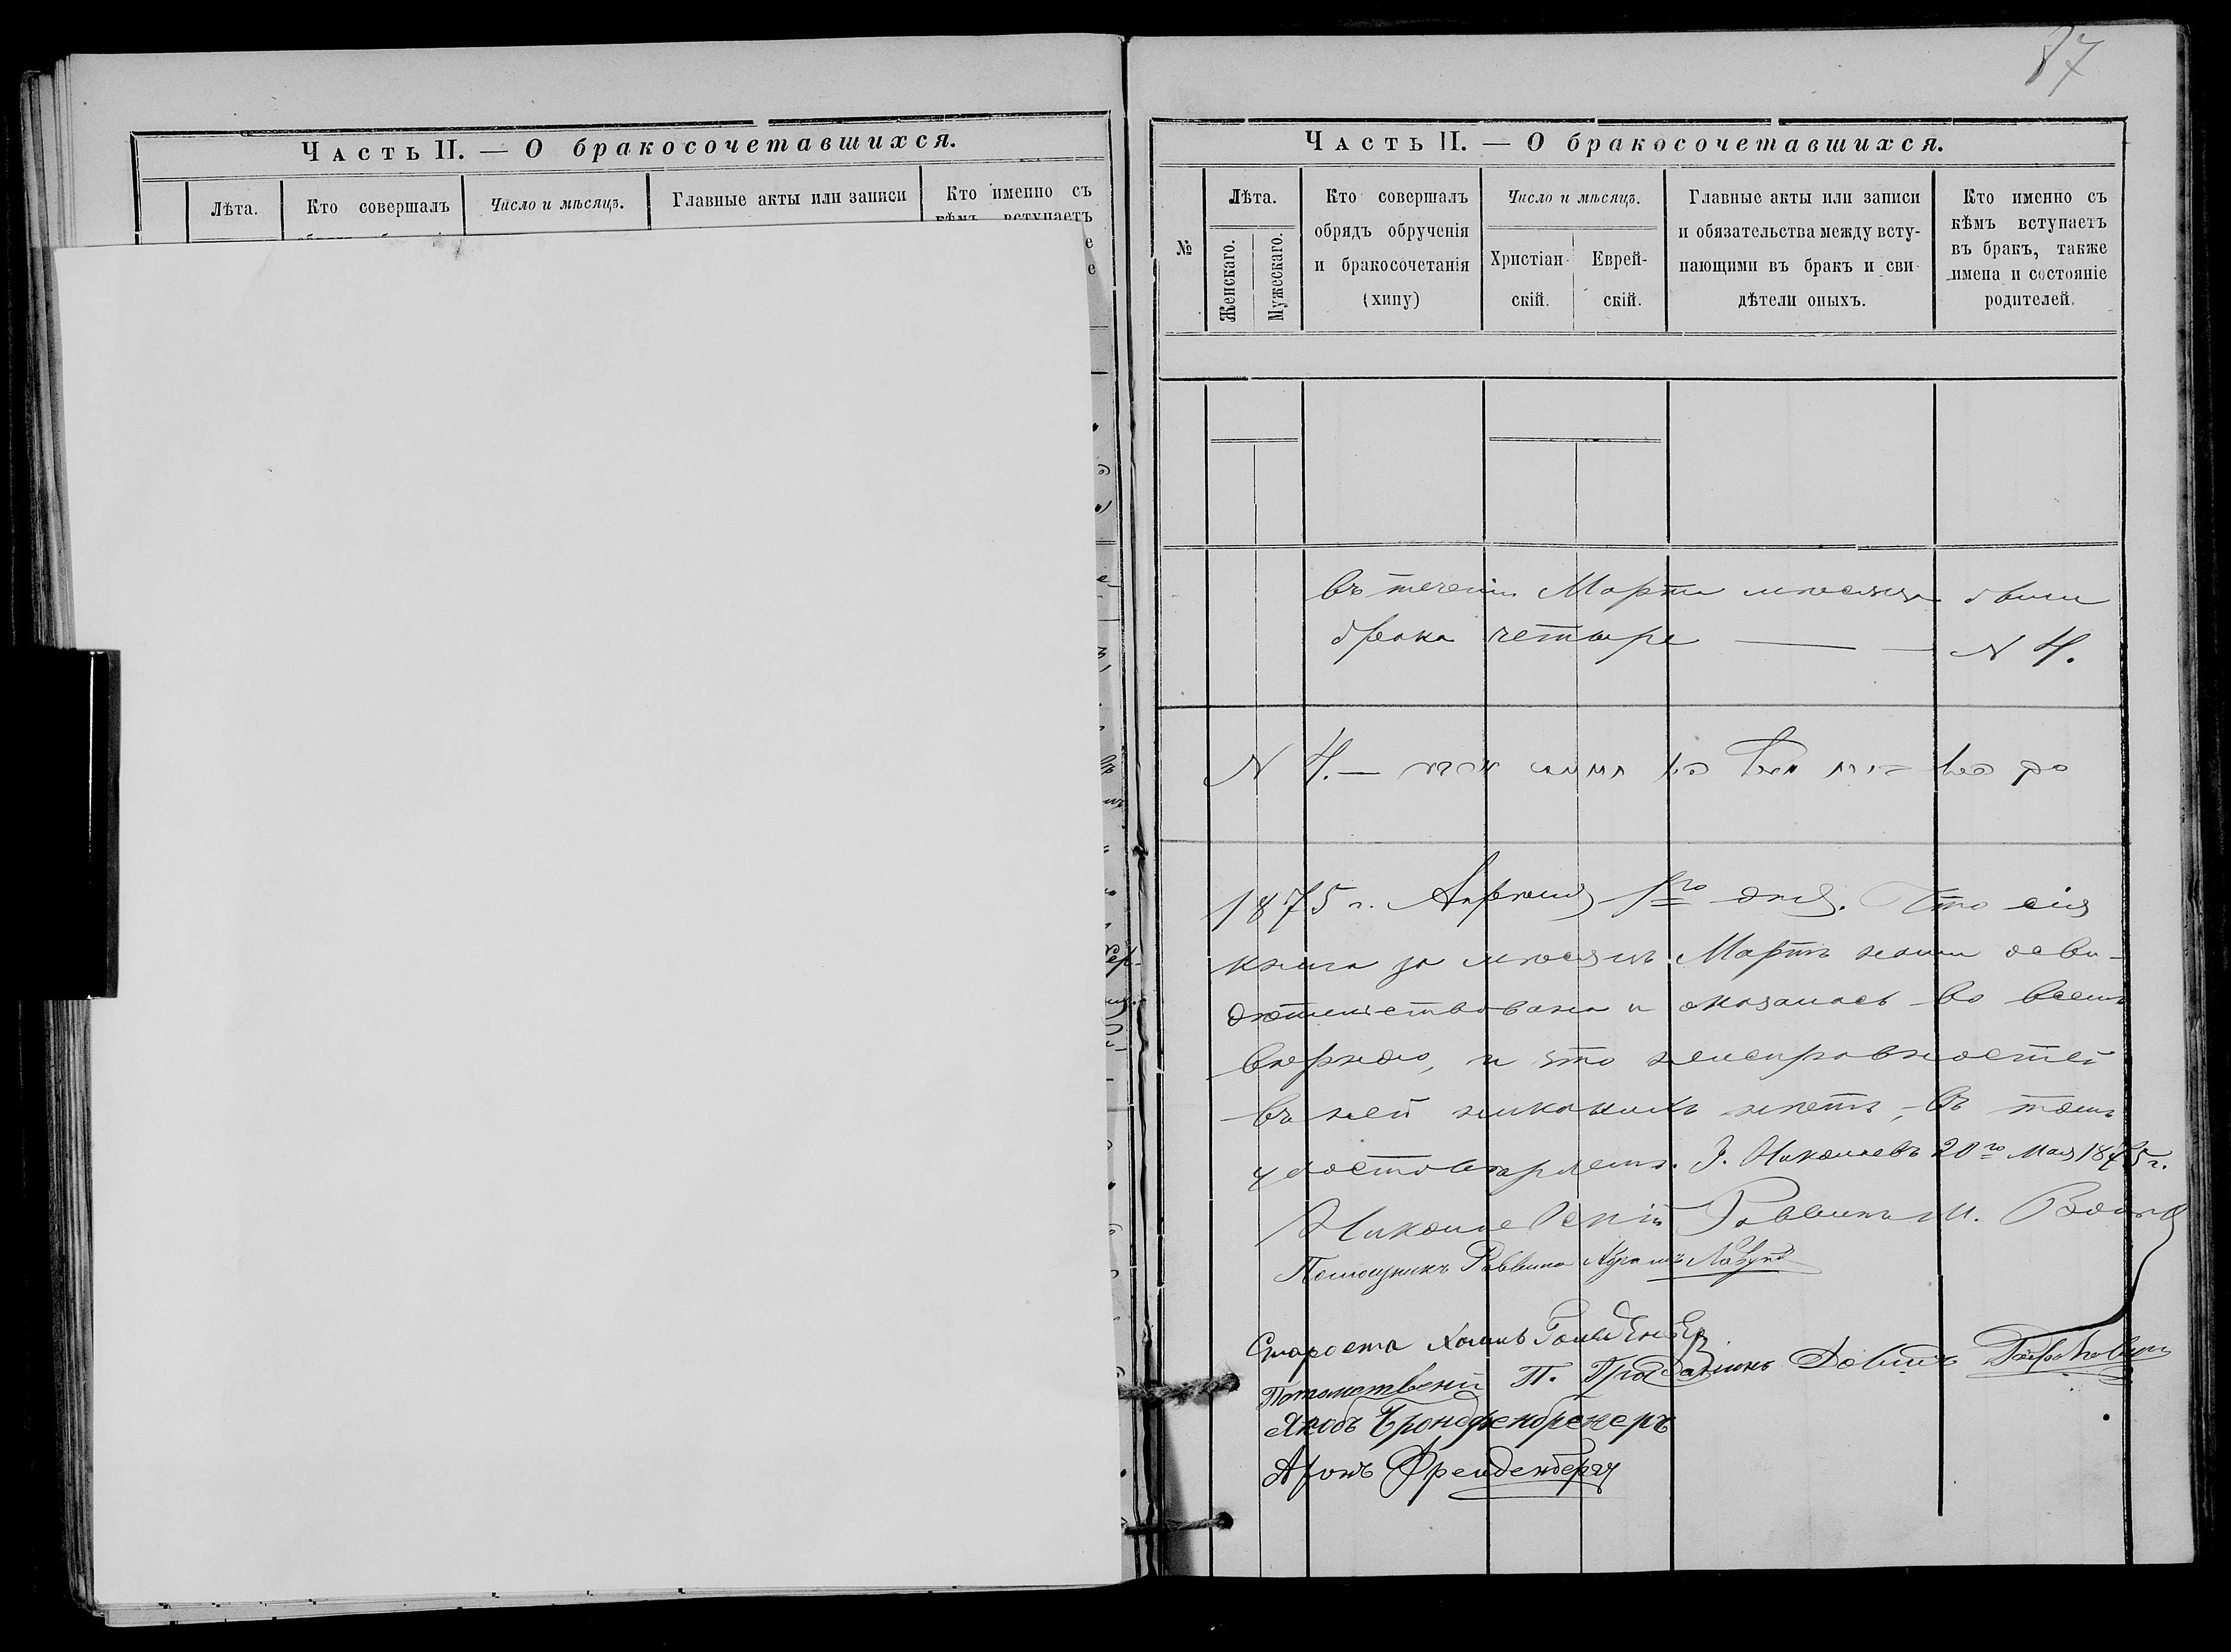 87
Часть II. — О бракосочетавшихся.
Лѣта.
Кто совершалъ
Число и мѣсяцъ.
Главные акты или записи
Кто именно съ
кѣмъ вступаетъ
Часть II. — О бракосочетавшихся.
№
Лѣта.
Женскаго.
Мужескаго.
Кто совершалъ
обрядъ обрученія
и бракосочетанія
(хипу)
Число и мѣсяцъ.
Христіан-
скій.
Еврей-
скій.
Главные акты или записи
и обязательства между всту-
пающими въ бракъ и сви-
дѣтели оныхъ.
Кто именно съ
кѣмъ вступаетъ
въ бракъ, также
имена и состояніе
родителей.
Въ теченіи Марта мѣсяца были
брака четыре — — N 4.
N 4. —
1875 г. Апрѣля 1го дня. Что сія
книга за мѣсяцъ Мартъ нами осви-
дѣтельствована и оказалась во всемъ
вѣрною, и что неисправностей
въ ней никакихъ нѣтъ, въ томъ
удостовѣряемъ. Г. Николаевъ 20го Мая 1875 г.
Николаевскій Раввинъ М.
Помощникъ Раввина Абрамъ
Староста Хаимъ
Потомственный П. Гражданинъ Давидъ
Якобъ
Аронъ Фрейденбергъ